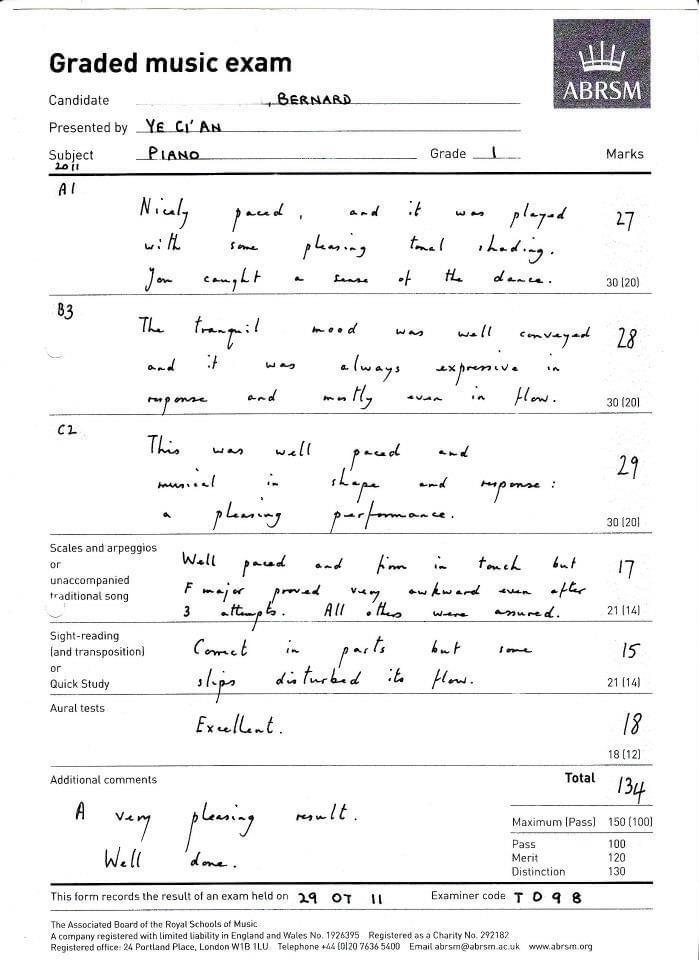 Graded music exam
ABRSM
Candidate , BERNARD
Presented by YE CI'AN
Subject PIANO Grade 1 Marks
2011
A1
Nicely paced, and it was played 27
with some pleasing tonal shading.
You caught a sense of the dance. 30 (20)
B3
The tranquil mood was well conveyed 28
and it was always expressive in
response and mostly even in flow. 30 (20)
C2
This was well paced and 29
musical in shape and response:
a pleasing performance. 30 (20)
Scales and arpeggios
or
unaccompanied
traditional song
Well paced and firm in touch but 17
F major proved very awkward even after
3 attempts. All others were assured. 21 (14)
Sight-reading
(and transposition)
or
Quick Study
Correct in parts but some 15
slips disturbed its flow. 21 (14)
Aural tests
Excellent. 18
18 (12)
Additional comments Total 134
A very pleasing result.
Well done.
Maximum (Pass) 150 (100)
Pass 100
Merit 120
Distinction 130
This form records the result of an exam held on 29 07 11 Examiner code T D 9 8
The Associated Board of the Royal Schools of Music
A company registered with limited liability in England and Wales No. 1926395 Registered as a Charity No. 292182
Registered office: 24 Portland Place, London W1B 1LU Telephone +44 (0)20 7636 5400 Email abrsm@abrsm.ac.uk www.abrsm.org